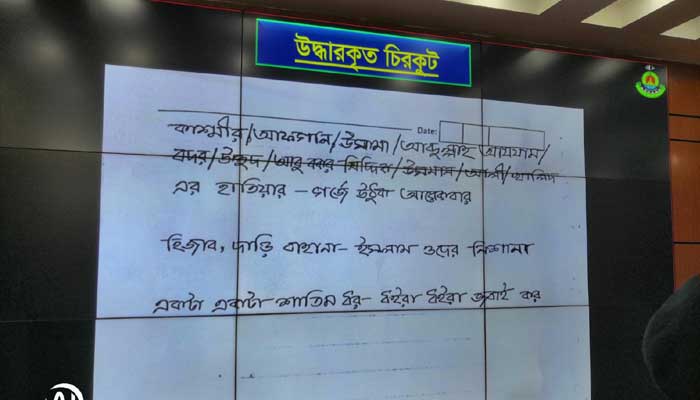 উদ্ধারকৃত চিরকুট
Date:
কাশ্মীর/আফগান/উসামা/আব্দুল্লাহ আযযাম/
বদর/উহুদ/আবু বকর সিদ্দিক/উসমান/আলী/খালিদ
এর হাতিয়ার - গর্জে উঠুক আরেকবার
হিজাব, দাড়ি বাহানা - ইসলাম ওদের নিশানা
একটা একটা শাতিম ধর - ধইরা ধইরা জবাই কর